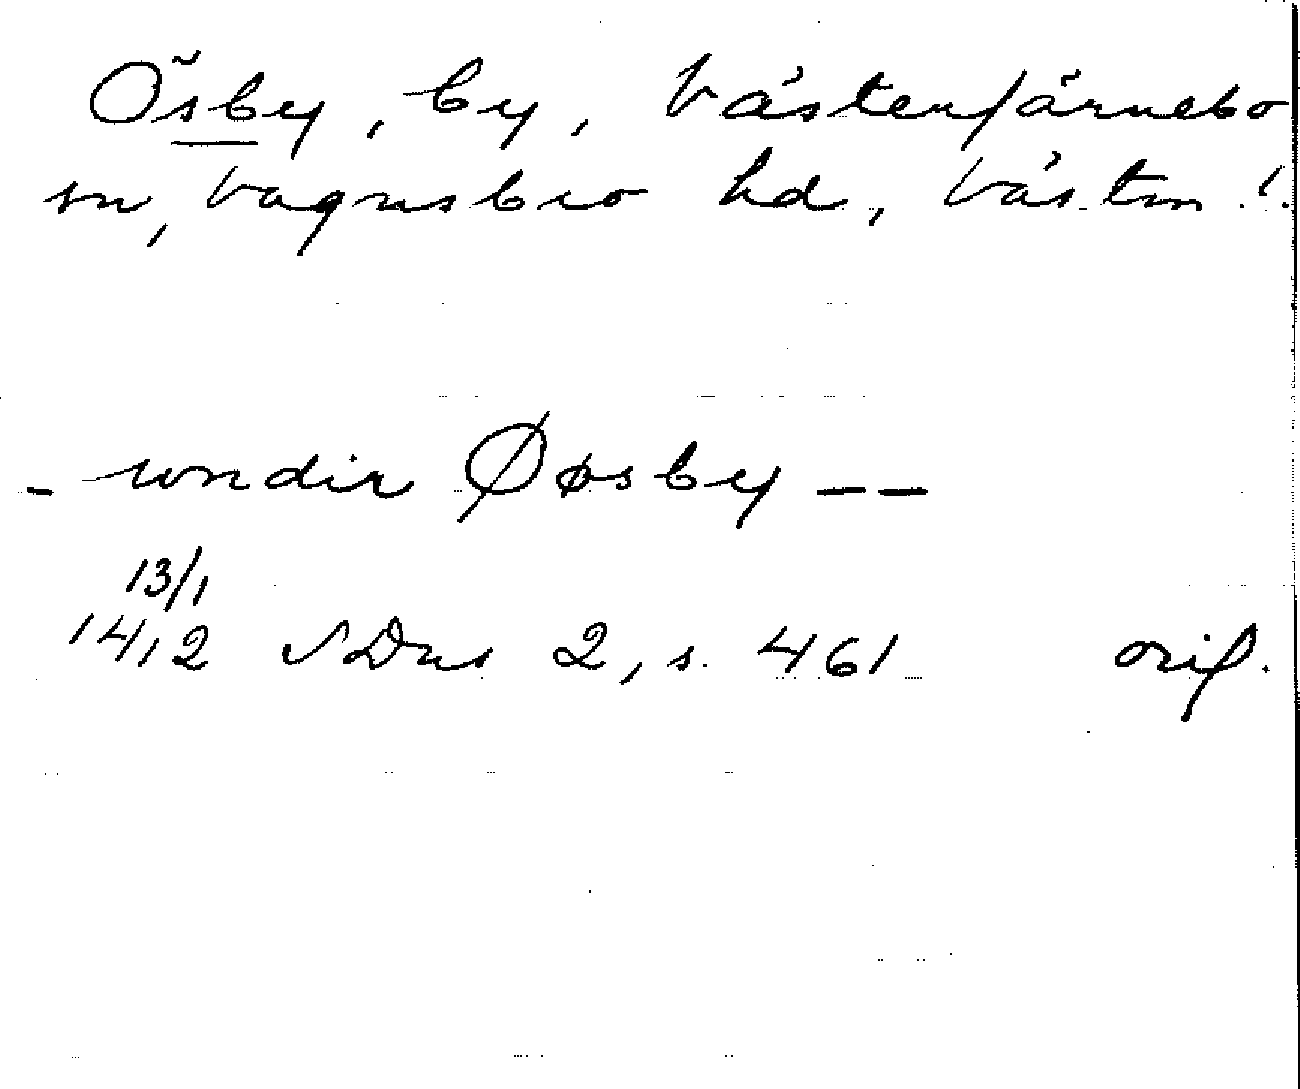 Ösby, by, Västerfärnebo
sn, Vagnsbro hd, Västm. l.
- undir Øøsby — —
13/1
1412 SDns 2, s. 461 orig.